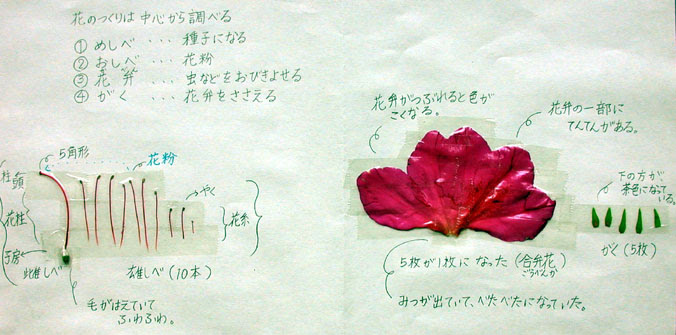 花のつくりは中心から調べる
① めしべ ・・・ 種子になる
② おしべ ・・・ 花粉
③ 花弁 ・・・ 虫などをおびきよせる
④ がく ・・・ 花弁をささえる
5角形
花粉
柱頭
花柱
子房
雌しべ
やく
花糸
雄しべ (10本)
毛がはえていて
ふわふわ。
花弁がつぶれると色が
こくなる。
花弁の一部に
てんてんがある。
下の方が、
茶色になって
いる。
がく (5枚)
5枚が1枚になった (合弁花)
ごうべんか
みつが出ていて、べたべたになっていた。